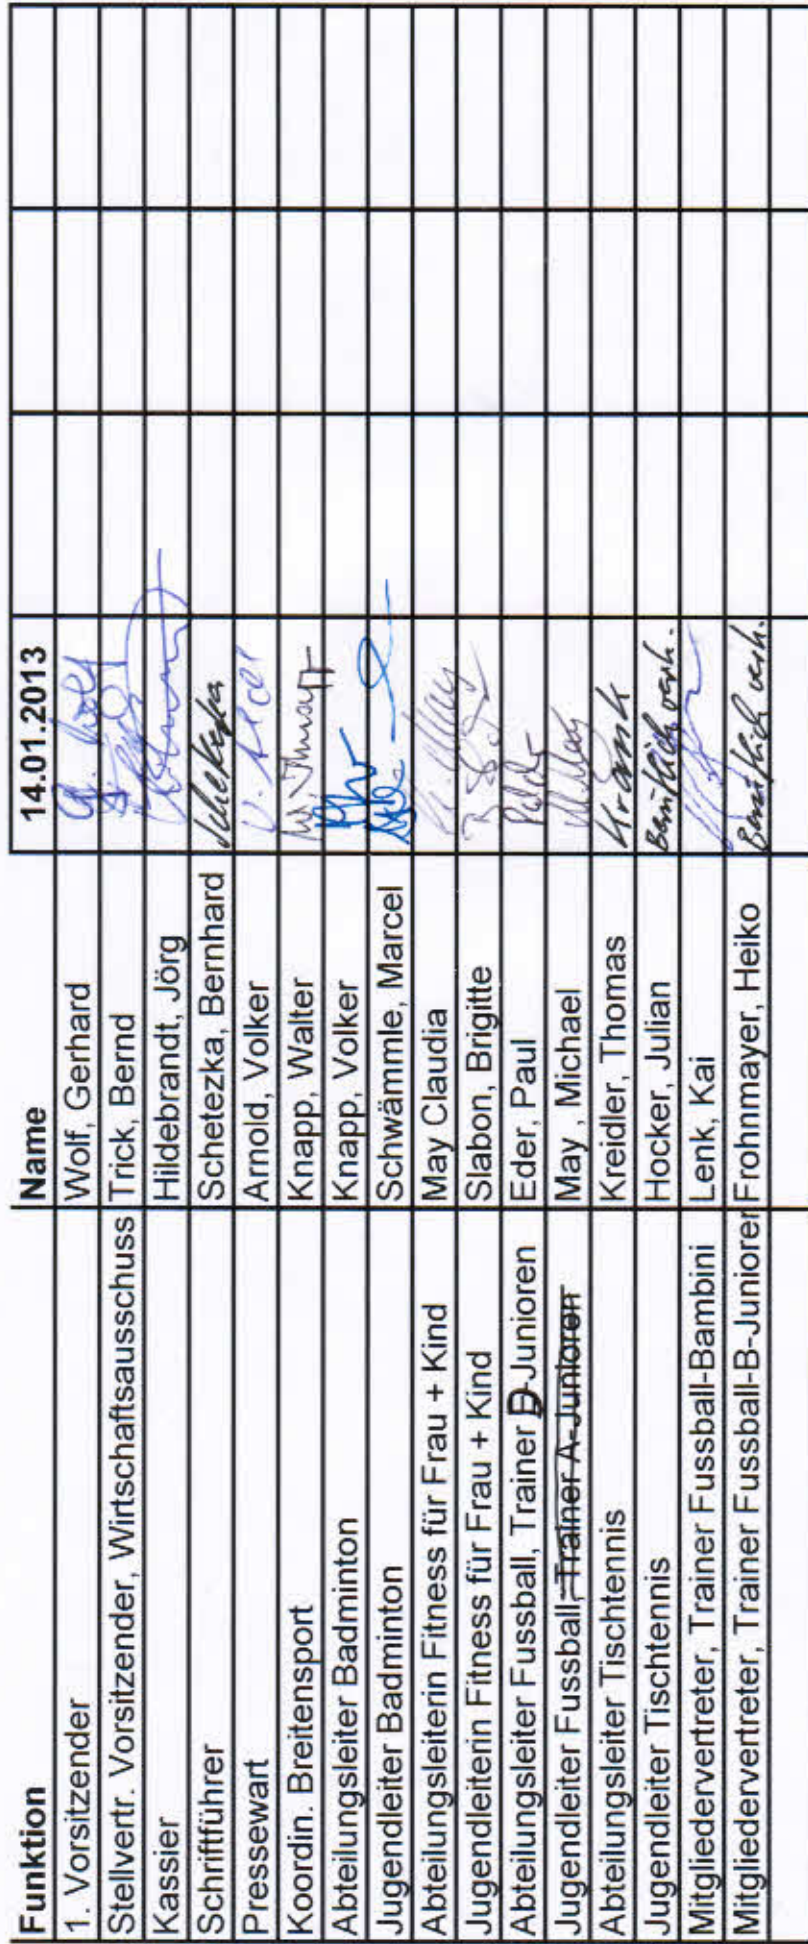 Funktion Name 14.01.2013
1. Vorsitzender Wolf, Gerhard G. Wolf
Stellvertr. Vorsitzender, Wirtschaftsausschuss Trick, Bernd
Kassier Hildebrandt, Jörg
Schriftführer Schetezka, Bernhard Schetezka
Pressewart Arnold, Volker
Koordin. Breitensport Knapp, Walter W. Knapp
Abteilungsleiter Badminton Knapp, Volker
Jugendleiter Badminton Schwämmle, Marcel
Abteilungsleiterin Fitness für Frau + Kind May Claudia
Jugendleiterin Fitness für Frau + Kind Slabon, Brigitte
Abteilungsleiter Fussball, Trainer D-Junioren Eder, Paul
Jugendleiter Fussball, Trainer A-Junioren May , Michael
Abteilungsleiter Tischtennis Kreidler, Thomas krank
Jugendleiter Tischtennis Hocker, Julian Beruflich verh.
Mitgliedervertreter, Trainer Fussball-Bambini Lenk, Kai
Mitgliedervertreter, Trainer Fussball-B-Junioren Frohnmayer, Heiko Beruflich verh.